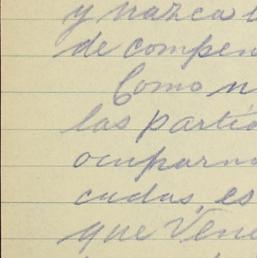 y nazca
de compen
Como n
las partid
ocuparno
cudas, es
que Vene